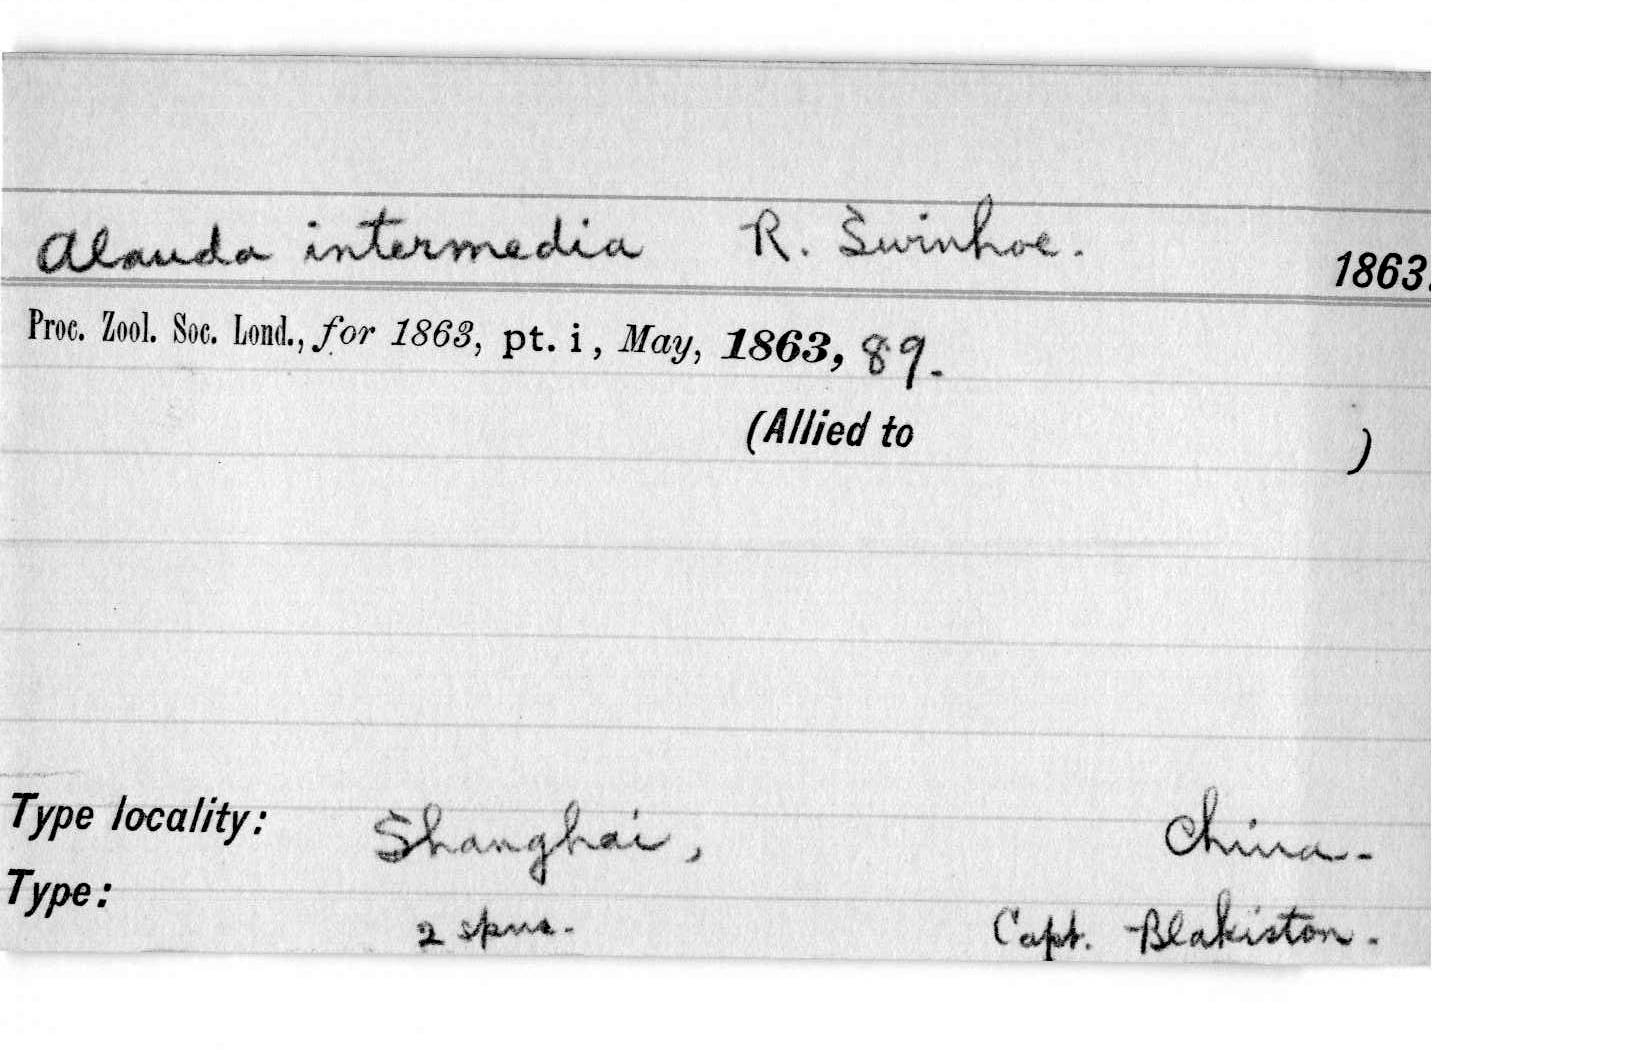 Alauda intermedia R. Swinhoe. 1863.
Proc. Zool. Soc. Lond., for 1863, pt. i, May, 1863, 89.
(Allied to )
Type locality: Shanghai, China.
Type: 2 spms. Capt. Blakiston.